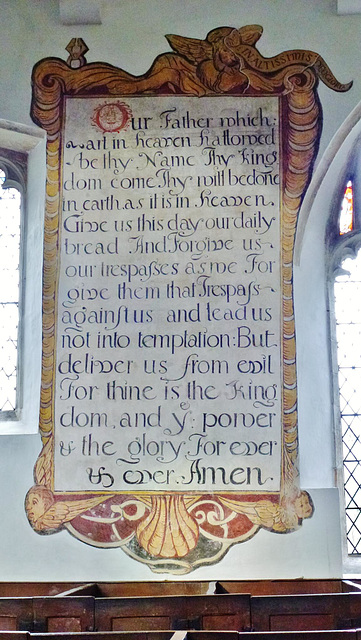 IN ALTISSIMIS
Our Father which:
art in heaven hallowed
be thy Name Thy King
dom come. Thy will be done
in earth. as it is in heaven.
Give us this day our daily
bread And Forgive us
our trespaſſes as we For
give them that Treſpaſs
againſt us and lead us
not into temptation: But
deliver us from evil
For thine is the King
dom, and yᵉ power
& the glory, For ever
& ever. Amen.